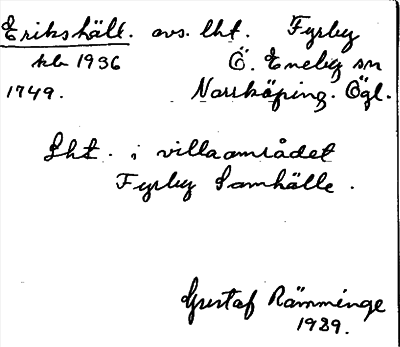 Erikshäll. avs. lht. Fyrby
kb 1936 Ö. Eneby sn
1749. Norrköping. Ögl.
Lht. i villaområdet
Fyrby Samhälle.
Gustaf Rämminge
1939.